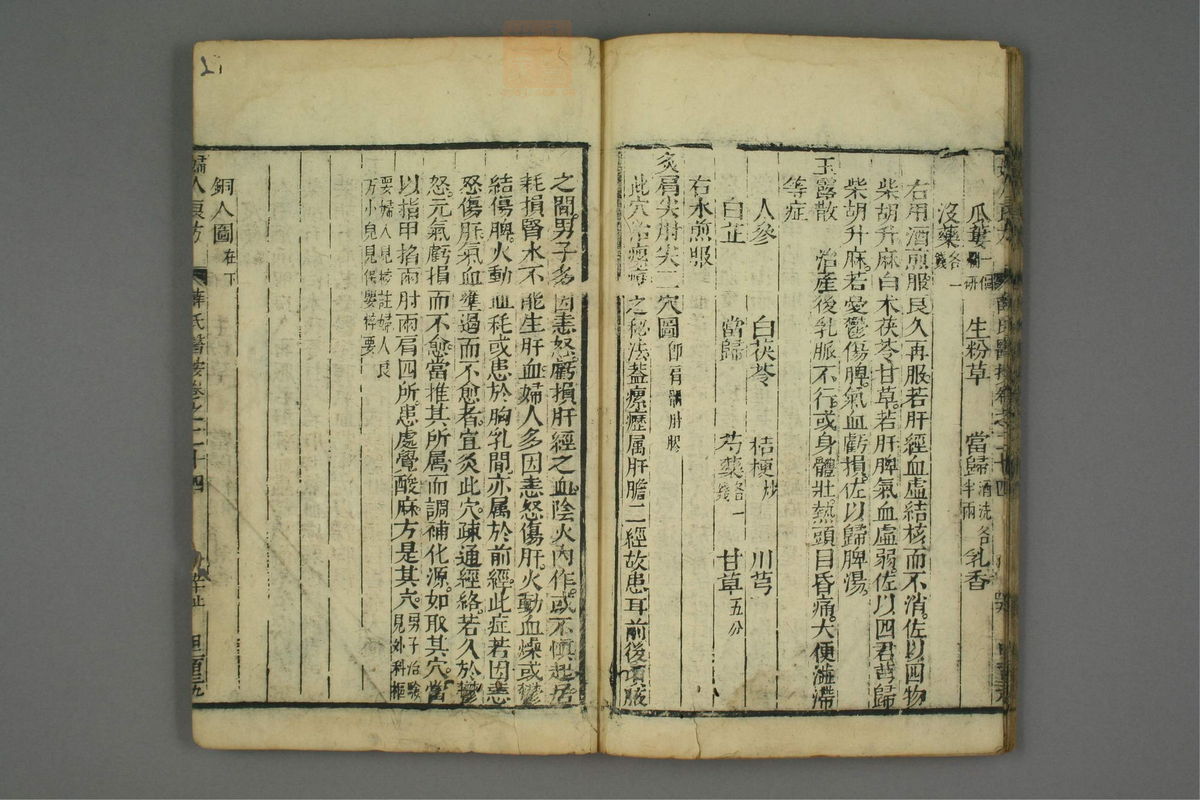 瓜蔞一個爛研　生粉草　當歸酒洗各半兩　乳香
沒藥各一錢
右用酒煎服良久再服若肝經血虛結核而不消佐以四物
柴胡升麻白木茯苓甘草若肝脾氣血虛弱佐以四君芎歸
柴胡升麻若憂鬱傷脾氣血虧損佐以歸脾湯
玉露散　治產後乳脈不行或身體壯熱頭目昏痛大便澁滯
等症
人參　白茯苓　桔梗炒　川芎
白芷　當歸　芍藥各一錢　甘草五分
右水煎服
灸肩尖肘尖二穴圖即肩髃肘髎
此穴治瘰癧之秘法蓋瘰癧属肝膽二經故患耳前後項腋
之間男子多因恚怒虧損肝經之血陰火內作或不慎起居
耗損腎水不能生肝血婦人多因恚怒傷肝火動血燥或鬱
結傷脾火動血耗或患於胸乳間亦属於前經此症若因恚
怒傷肝氣血壅遏而不愈者宜灸此穴疎通經絡若久於鬱
怒元氣虧損而不愈當推其所属而調補化源如取其穴當
以指甲掐兩肘兩肩四所患處覺酸麻方是其穴男子治驗見外科樞
要婦人見校註婦人良方小兒見保嬰粹要
銅人圖在下
婦人良方　薛氏醫按卷之二十四